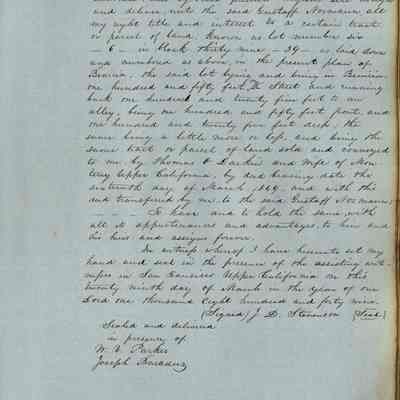 and deliver unto the said Gustaff Normann, all
my right title and interest to a certain tract
or parcel of land, known as lot number six
— 6 — in block thirty nine — 39 — as laid down
and numbered as above, in the present plan of
Benicia, the said lot lying and being in Benicia
one hundred and fifty feet, Street and running
back one hundred and twenty five feet to an
alley, being one hundred and fifty feet front, and
one hundred and twenty five feet deep, the
same being a little more or less, and being the
same tract or parcel of land sold and conveyed
to me by Thomas O Larkin and Wife of Mon-
terey Upper California, by deed bearing date the
sixteenth day of March 1849, and with this
and transferred by me to the said Gustaff Normann,
— — — To have and to hold the same, with
all its appurtenances and advantages, to him and
his heirs and assigns forever.
In witness whereof I have hereunto set my
hand and seal in the presence of the assisting wit-
nesses in San Francisco Upper California on this
twenty ninth day of March in the year of our
Lord one thousand Eight hundred and forty nine.
(Signed) J. D. Stevenson (Seal)
Sealed and delivered
in presence of
Parker
Joseph